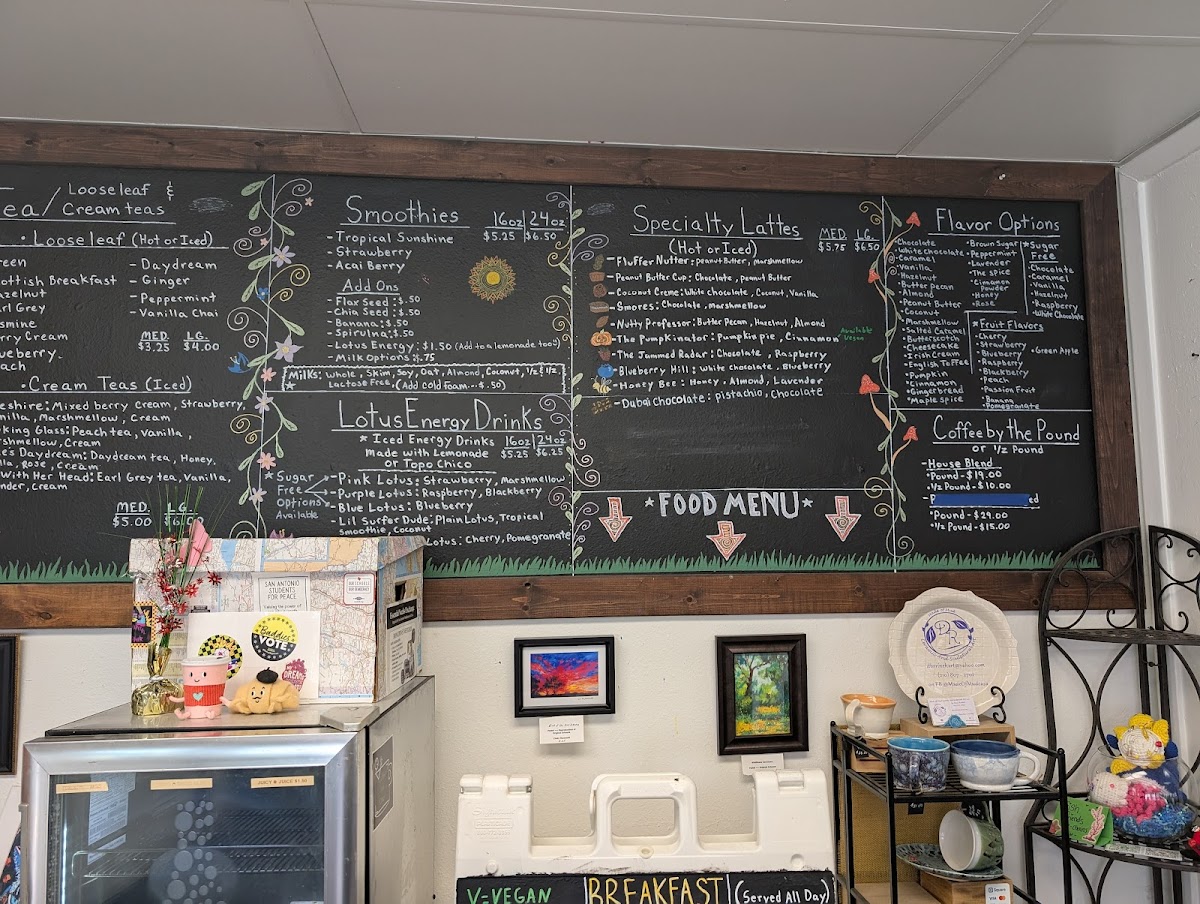 Looseleaf &
Tea/ Cream teas
• Looseleaf (Hot or Iced)
Breakfast
- Daydream
- Ginger
- Peppermint
- Vanilla Chai
MED. LG.
$3.25 $4.00
• Cream Teas (Iced)
: Mixed berry Cream, Strawberry,
Marshmellow, Cream
Glass: Peach tea, Vanilla,
Cream
Daydream: Daydream tea, Honey,
Rose, Cream
With Her Head: Earl Grey tea, Vanilla,
Cream
MED. LG.
$5.00
Smoothies
16oz | 24oz
$5.25 | $6.50
- Tropical Sunshine
- Strawberry
- Acai Berry
Add Ons
- Flax Seed: $.50
- Chia Seed: $.50
- Banana: $.50
- Spirulina: $.50
- Lotus Energy: $1.50 (Add to a lemonade too!)
- Milk Options: $.75
Milks: Whole, Skim, Soy, Oat, Almond, Coconut, 1/2 & 1/2
* Lactose Free, (Add cold foam...$.50)
Lotus Energy Drinks
* Iced Energy Drinks 16oz | 24oz
Made with Lemonade $5.25 $6.25
or Topo Chico
* Sugar Free Options Available
- Pink Lotus: Strawberry, Marshmellow
- Purple Lotus: Raspberry, Blackberry
- Blue Lotus: Blueberry
- Lil Surfer Dude: Plain Lotus, Tropical
Smoothie, Coconut
Lotus: Cherry, Pomegranate
Specialty Lattes
(Hot or Iced)
MED. LG.
$5.75 $6.50
- Fluffer Nutter: Peanut Butter, Marshmellow
- Peanut Butter Cup: Chocolate, Peanut Butter
- Coconut Creme: White chocolate, Coconut, Vanilla
- Smores: Chocolate, Marshmellow
- Nutty Professor: Butter Pecan, Hazelnut, Almond
- The Pumpkinator: Pumpkin pie, Cinnamon
Available Vegan
- The Jammed Radar: Chocolate, Raspberry
- Blueberry Hill: White chocolate, Blueberry
- Honey Bee: Honey, Almond, Lavender
- Dubai Chocolate: pistachio, Chocolate
* FOOD MENU *
Flavor Options
• Chocolate
• White Chocolate
• Caramel
• Vanilla
• Hazelnut
• Butter pecan
• Almond
• Peanut Butter
• Coconut
• Marshmellow
• Salted Caramel
• Butterscotch
• Cheesecake
• Irish Cream
• English Toffee
• Pumpkin
• Cinnamon
• Gingerbread
• Maple Spice
• Brown Sugar
• Peppermint
• Lavender
• The spice
• Cinnamon Powder
• Honey
• Rose
* Sugar Free
• Chocolate
• Caramel
• Vanilla
• Hazelnut
• Raspberry
• White Chocolate
* Fruit Flavors
• Cherry
• Strawberry
• Blueberry
• Raspberry
• Blackberry
• Peach
• Passion Fruit
• Banana
• Pomegranate
• Green Apple
Coffee by the Pound
or 1/2 Pound
- House Blend
• Pound - $19.00
• 1/2 Pound - $10.00
• Pound - $29.00
• 1/2 Pound - $15.00
SAN ANTONIO
STUDENTS
FOR PEACE
Baddies
VOTE
DREAM
JUICY JUICE $1.50
PR
V=VEGAN
BREAKFAST
(Served All Day)
Square
VISA